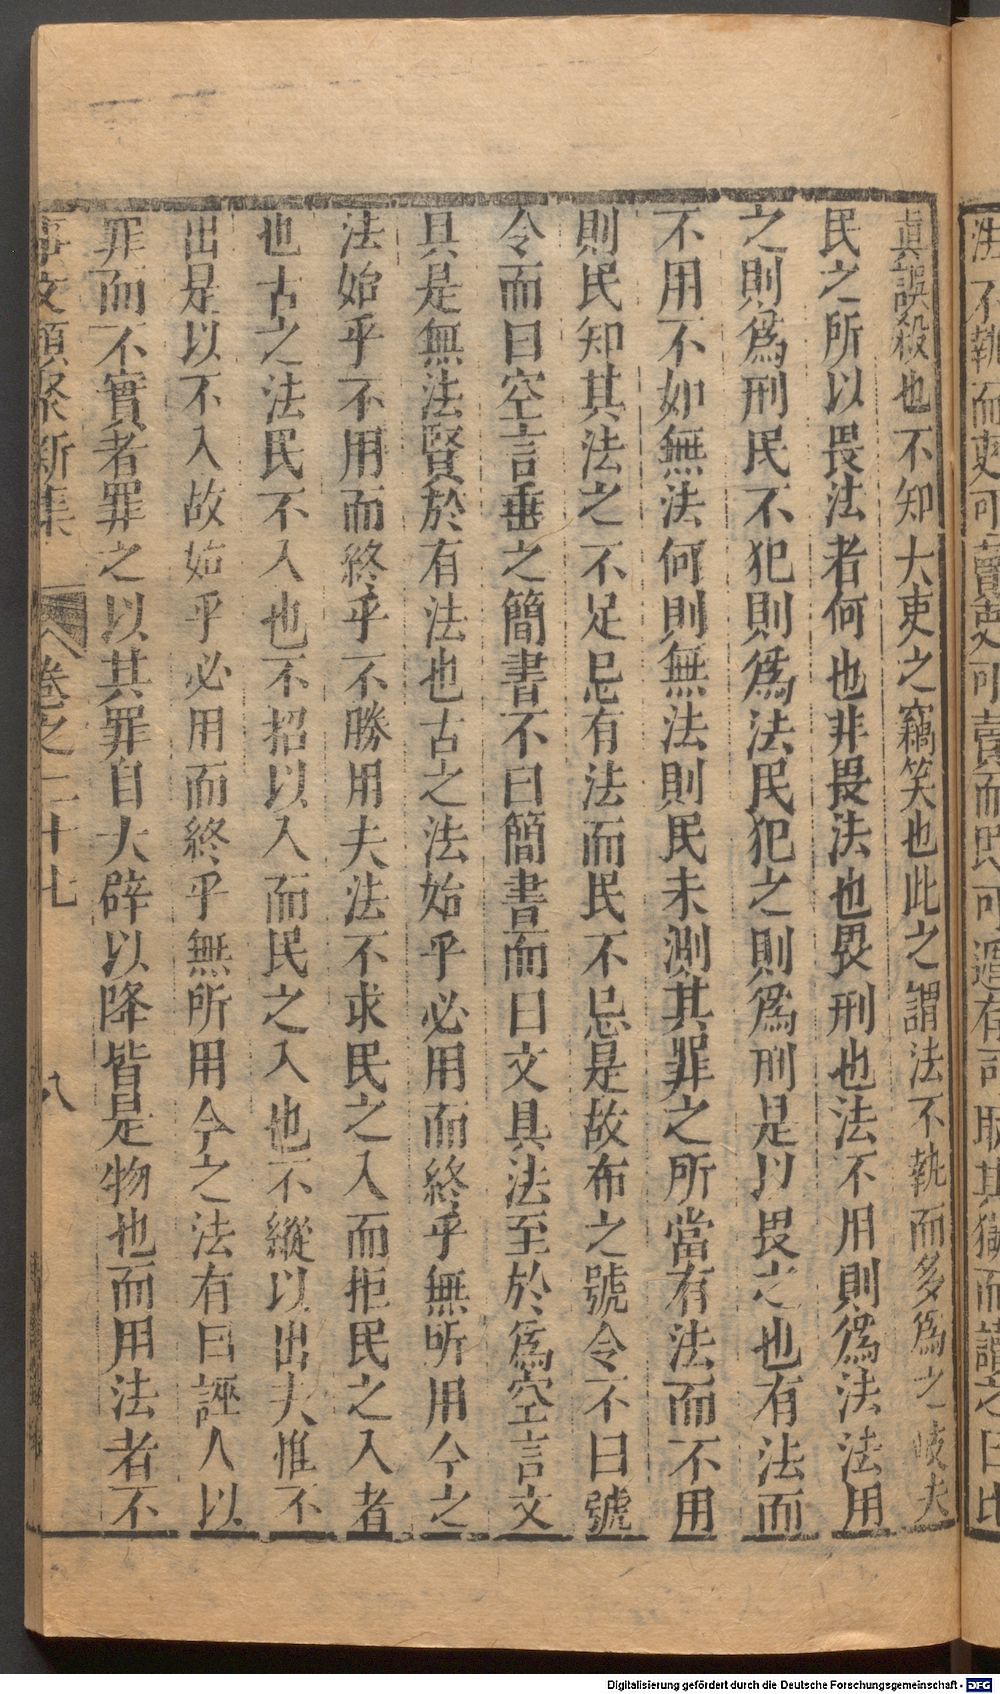 真誤殺也不知大吏之竊笑也此之謂法不執而多爲之岐夫
民之所以畏法者何也非畏法也畏刑也法不用則爲法法用
之則爲刑民不犯則爲法民犯之則爲刑是以畏之也有法而
不用不如無法何則無法則民未測其罪之所當有法而不用
則民知其法之不足忌有法而民不忌是故布之號令不曰號
令而曰空言垂之簡書不曰簡書而曰文具法至於爲空言文
具是無法賢於有法也古之法始乎必用而終乎無所用今之
法始乎不用而終乎不勝用夫法不求民之入而拒民之入者
也古之法民不入也不招以入而民之入也不縱以出夫惟不
出是以不入故始乎必用而終乎無所用今之法有曰誣人以
罪而不實者罪之以其罪自大辟以降皆是物也而用法者不
事文類聚新集 卷之二十七 八
Digitalisierung gefördert durch die Deutsche Forschungsgemeinschaft - DFG